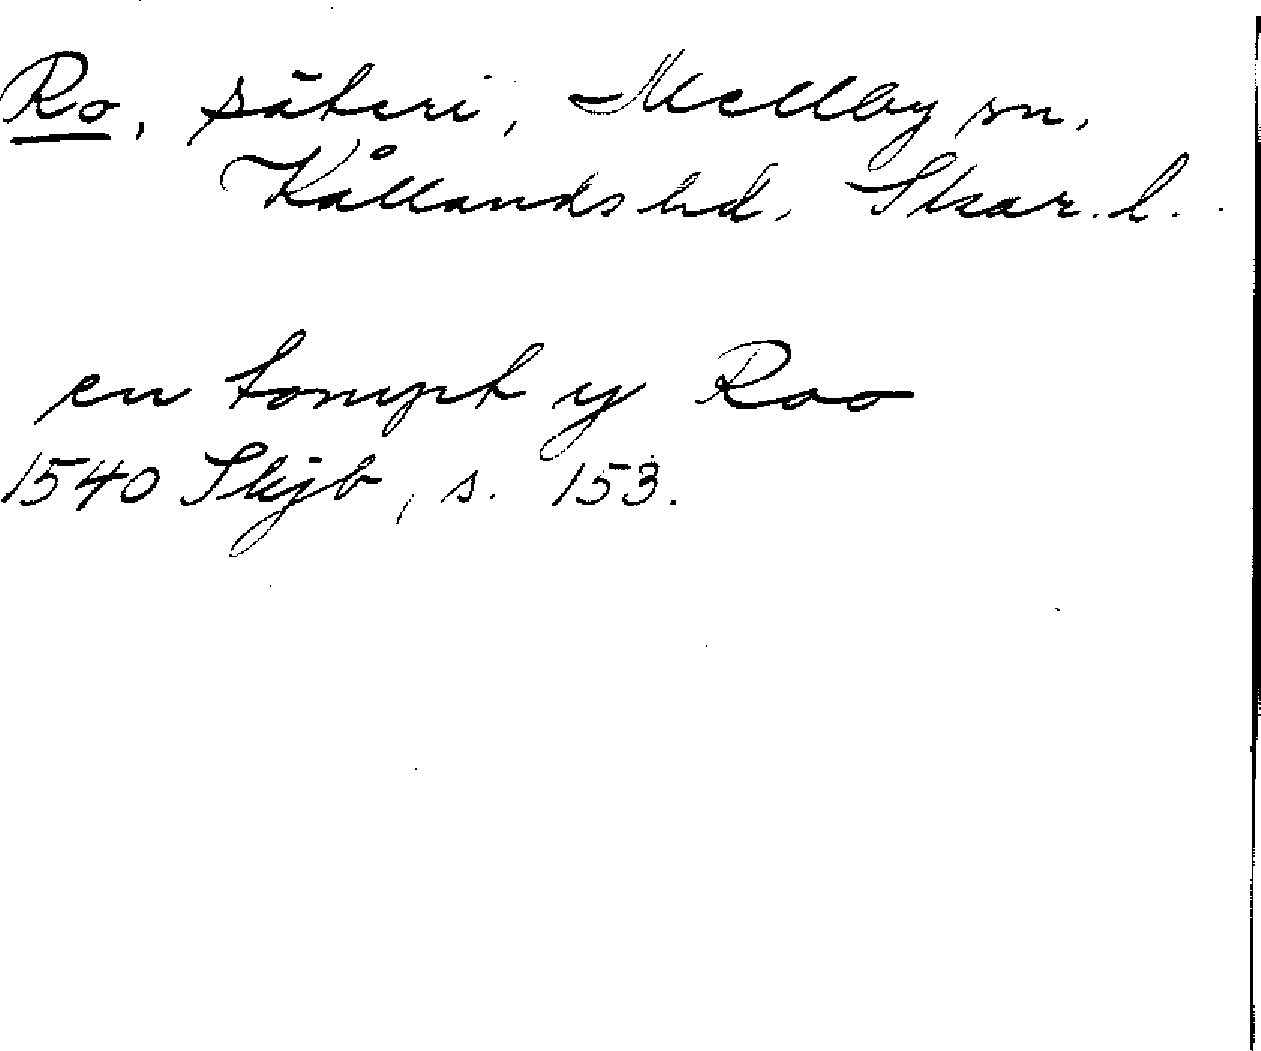 Ro, säteri, Mellby sn,
Kållands hd, Skar. l.
en tompt y Roo
1540 Skjb, s. 153.